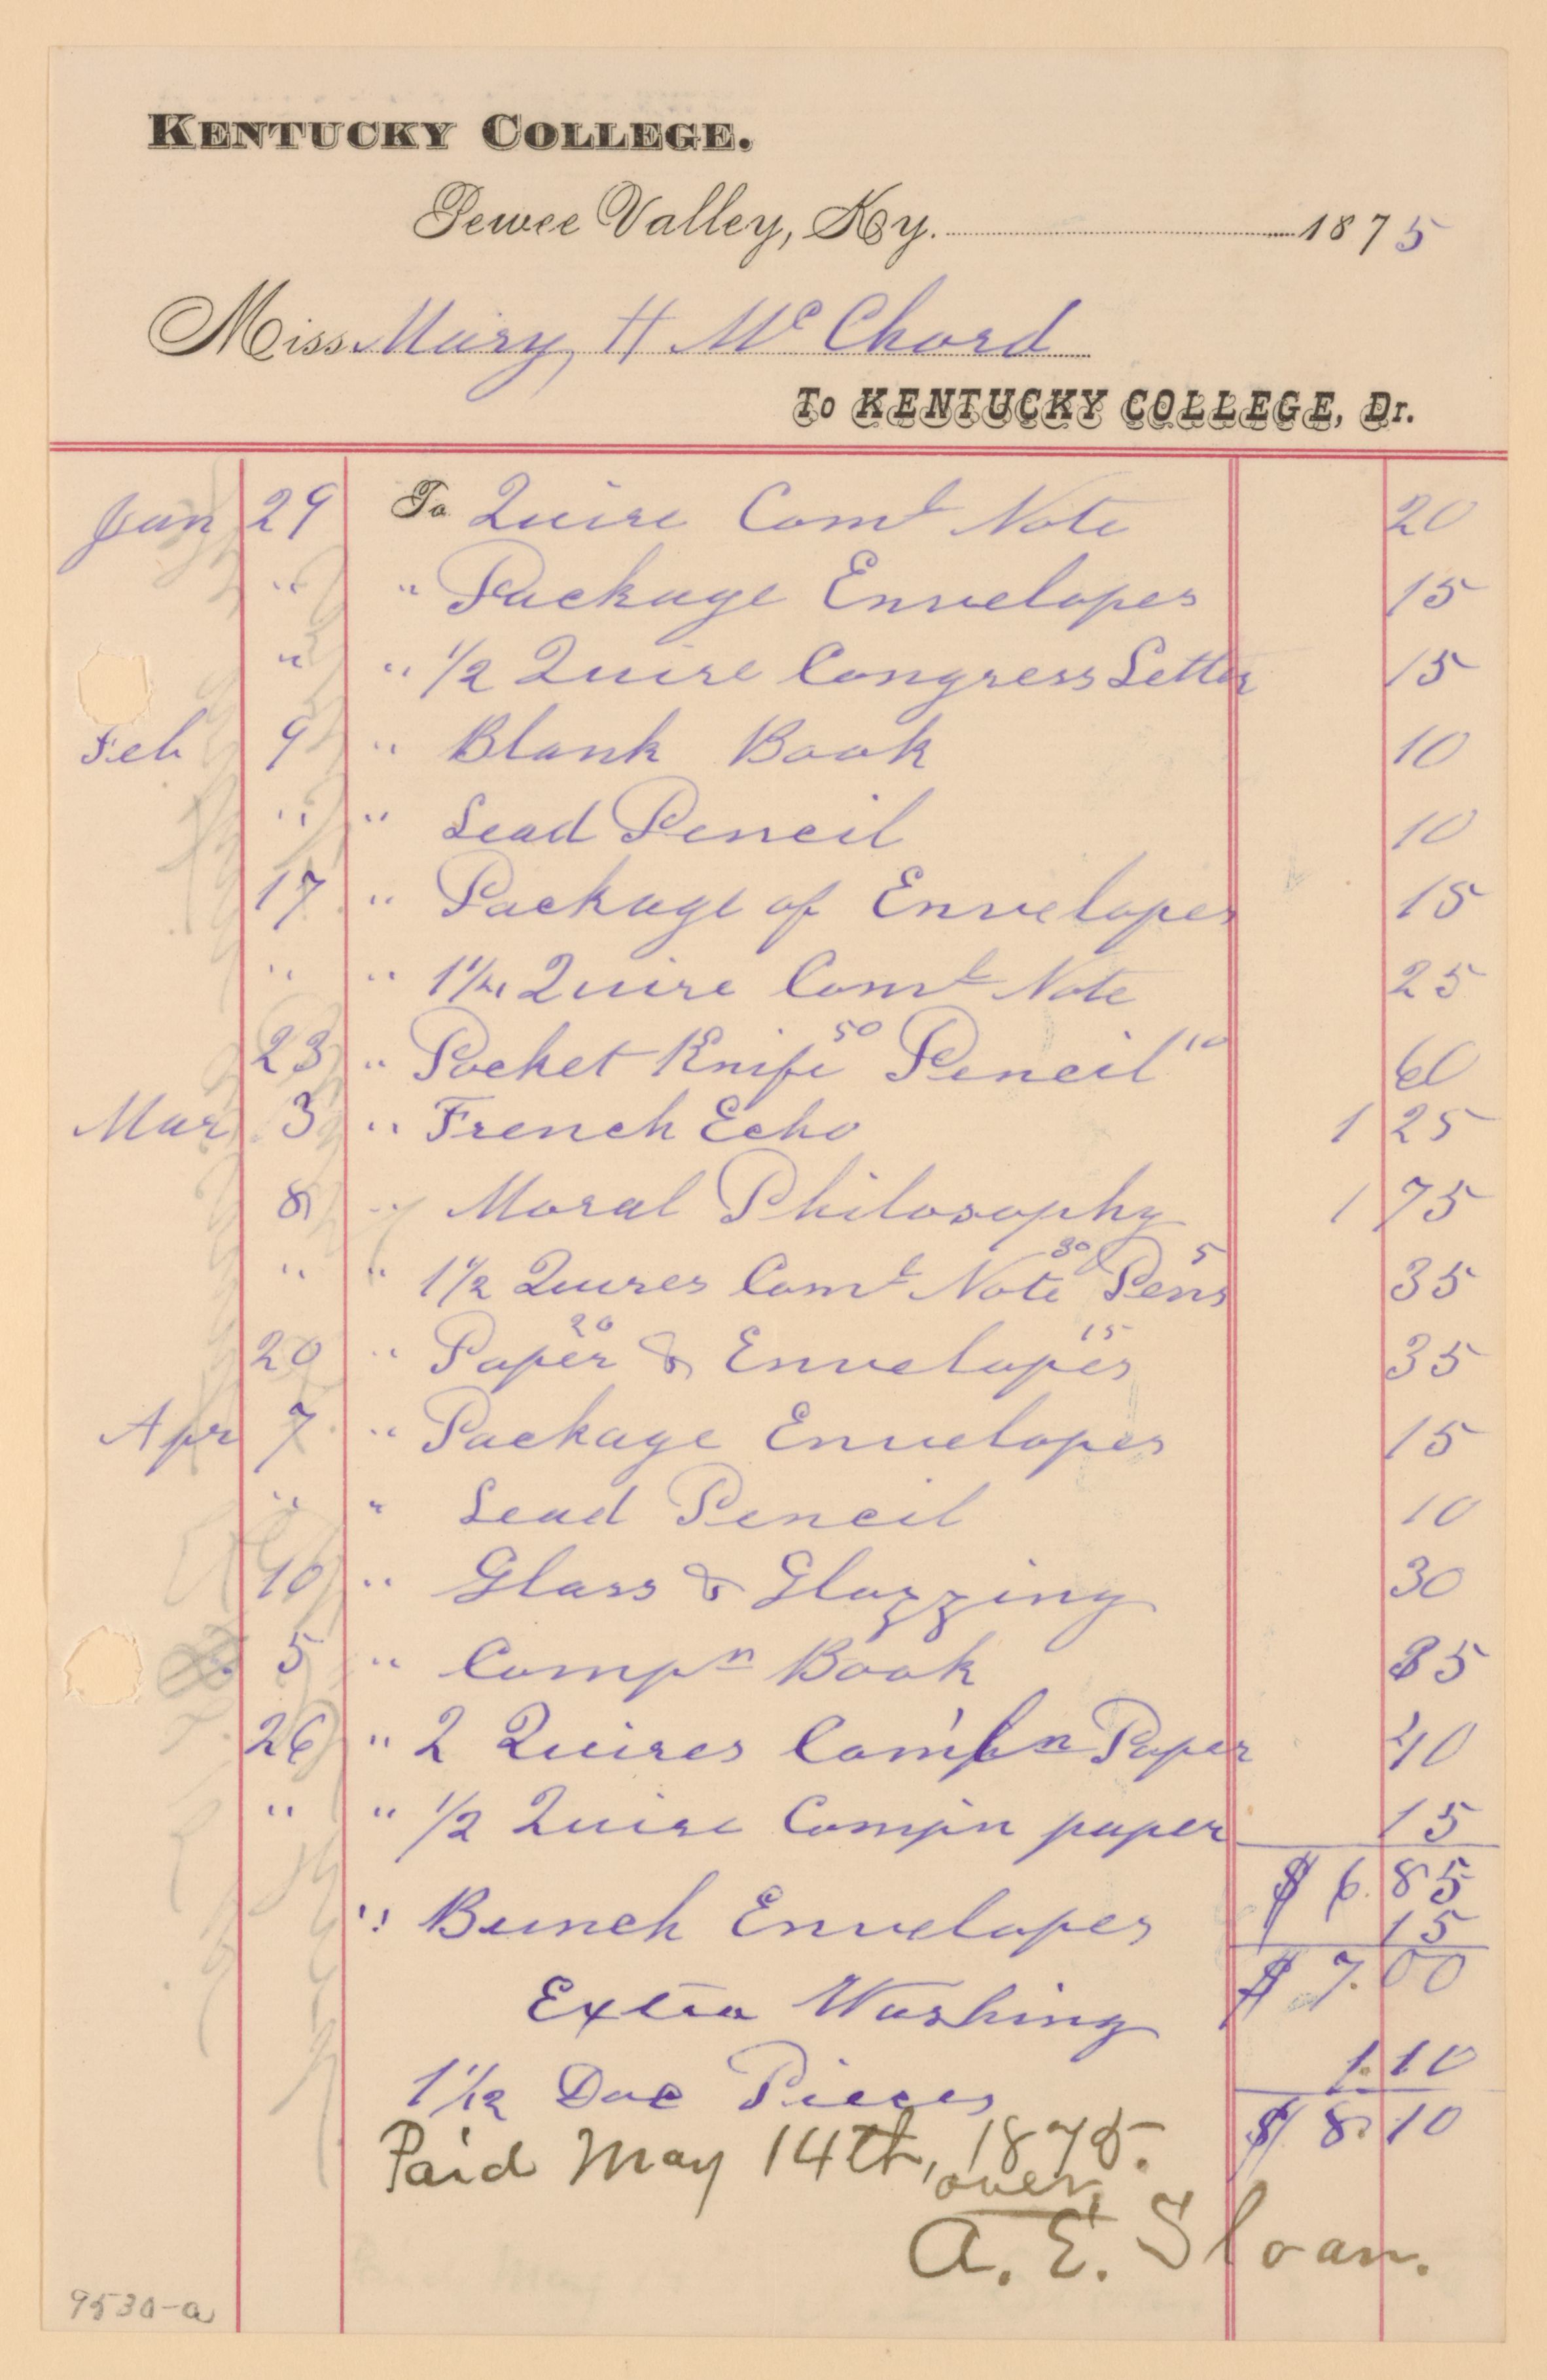 KENTUCKY COLLEGE.
Pewee Valley, Ky. 1875
Miss Mary, H McChord
To KENTUCKY COLLEGE, Dr.
Jan 29 To Quire Coml Note 20
" " Package Envelopes 15
" " 1/2 Quire Congress Letter 15
Feb 9 " Blank Book 10
" " Lead Pencil 10
17 " Package of Envelopes 15
" " 1 1/2 Quire Coml Note 25
23 " Pocket Knife 50 Pencil 10 60
Mar 3 " French Echo 1 25
8 " Moral Philosophy 1 75
" " 1 1/2 Quires Coml Note 30 Pens 5 35
20 " Paper 20 & Envelopes 15 35
Apr 7 " Package Envelopes 15
" " Lead Pencil 10
10 " Glass & Glazzing 30
5 " Compn Book 35
26 " 2 Quires Compn Paper 40
" " 1/2 Quire Compn paper 15
$ 6.85
" Bunch Envelopes 15
$ 7.00
Extra Washing
1 1/2 Doz Pieces 1.10
$ 8.10
Paid May 14th, 1875.
over
A. E. Sloan.
9530-a